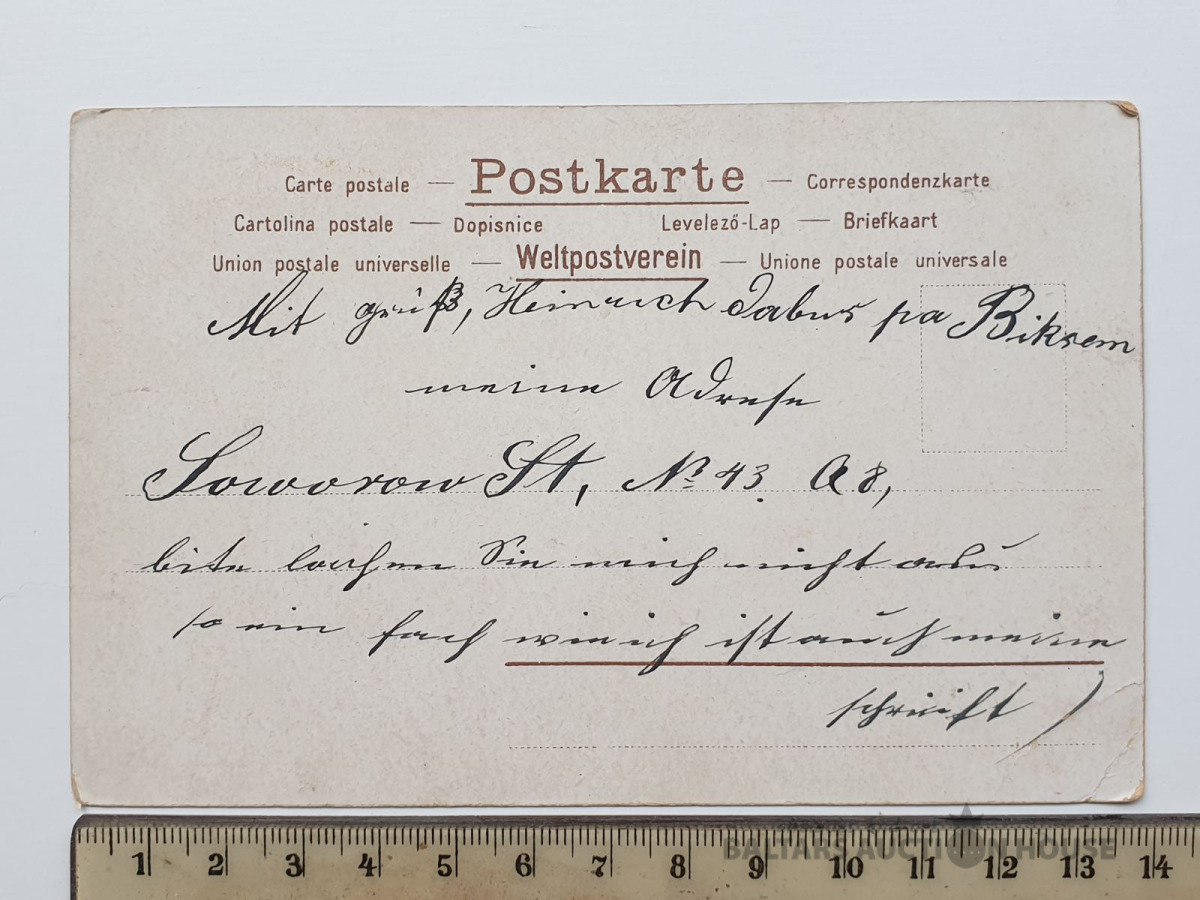 Carte postale — Postkarte — Correspondenzkarte
Cartolina postale — Dopisnice Levelező-Lap — Briefkaart
Union postale universelle — Weltpostverein — Unione postale universale
Mit grüß, Heinrich Dabus pa Biksem
meine Adrese
Soworow St, № 43. A 8,
bite lachen Sie mich nicht aus
so ein fach wie ich ist auch meine
schrüift
1 2 3 4 5 6 7 8 9 10 11 12 13 14
BALTARS AUCTION HOUSE